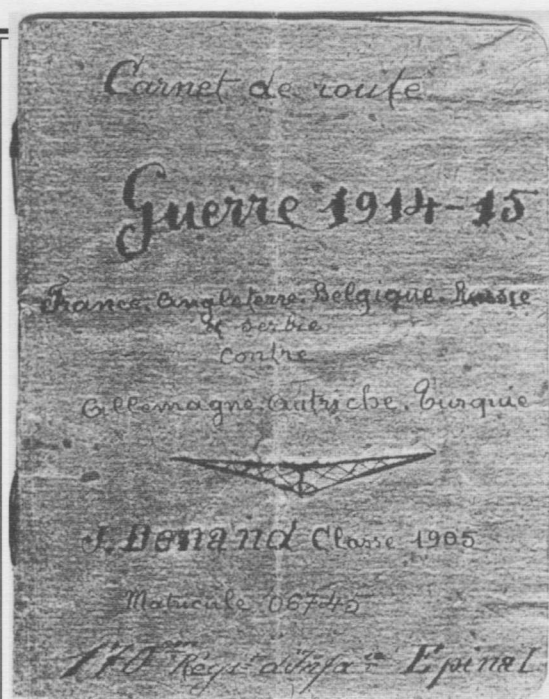 Carnet de route
Guerre 1914-15
France. Angleterre. Belgique. Russie
& Serbie
contre
Allemagne. Autriche. Turquie
J. Benand Classe 1905
Matricule 06745
170ème Régit d'Infie Epinal